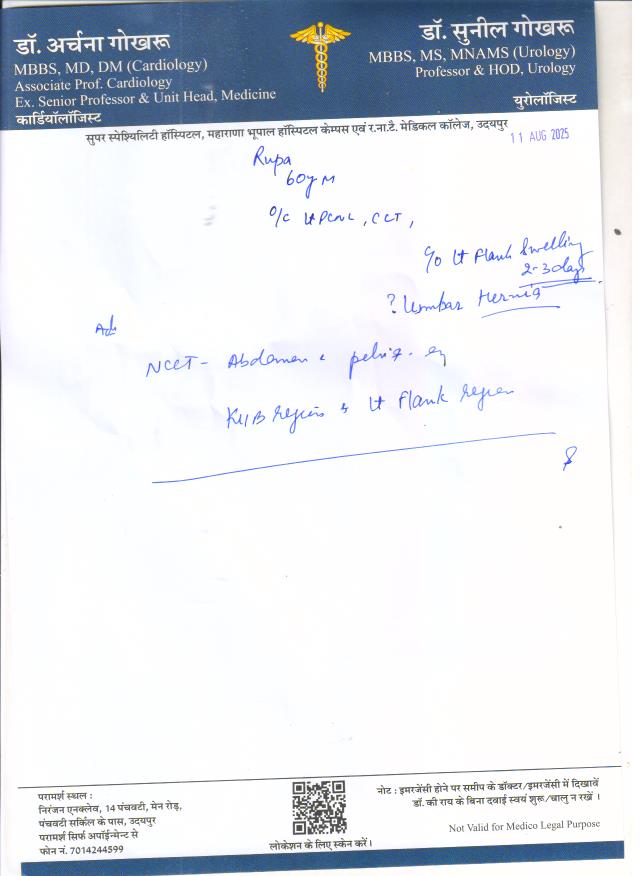 डॉ. अर्चना गोखरू
MBBS, MD, DM (Cardiology)
Associate Prof. Cardiology
Ex. Senior Professor & Unit Head, Medicine
कार्डियॉलॉजिस्ट
डॉ. सुनील गोखरू
MBBS, MS, MNAMS (Urology)
Professor & HOD, Urology
युरोलॉजिस्ट
सुपर स्पेश्यिलिटी हॉस्पिटल, महाराणा भूपाल हॉस्पिटल केम्पस एवं र.ना.टै. मेडिकल कॉलेज, उदयपुर
11 AUG 2025
Rupa
60y M
O/C Lt PCNL, CCT,
c/o Lt Flank Swelling
2-3 days
? Lumbar Hernia
Adv
NCCT - Abdomen & pelvis
KUB region & Lt Flank region
परामर्श स्थल :
निरंजन एनक्लेव, 14 पंचवटी, मेन रोड़,
पंचवटी सर्किल के पास, उदयपुर
परामर्श सिर्फ अपॉईन्मेन्ट से
फोन नं. 7014244599
लोकेशन के लिए स्केन करें।
नोट : इमरजेंसी होने पर समीप के डॉक्टर/इमरजेंसी में दिखावें
डॉ. की राय के बिना दवाई स्वयं शुरू/चालु न रखें ।
Not Valid for Medico Legal Purpose